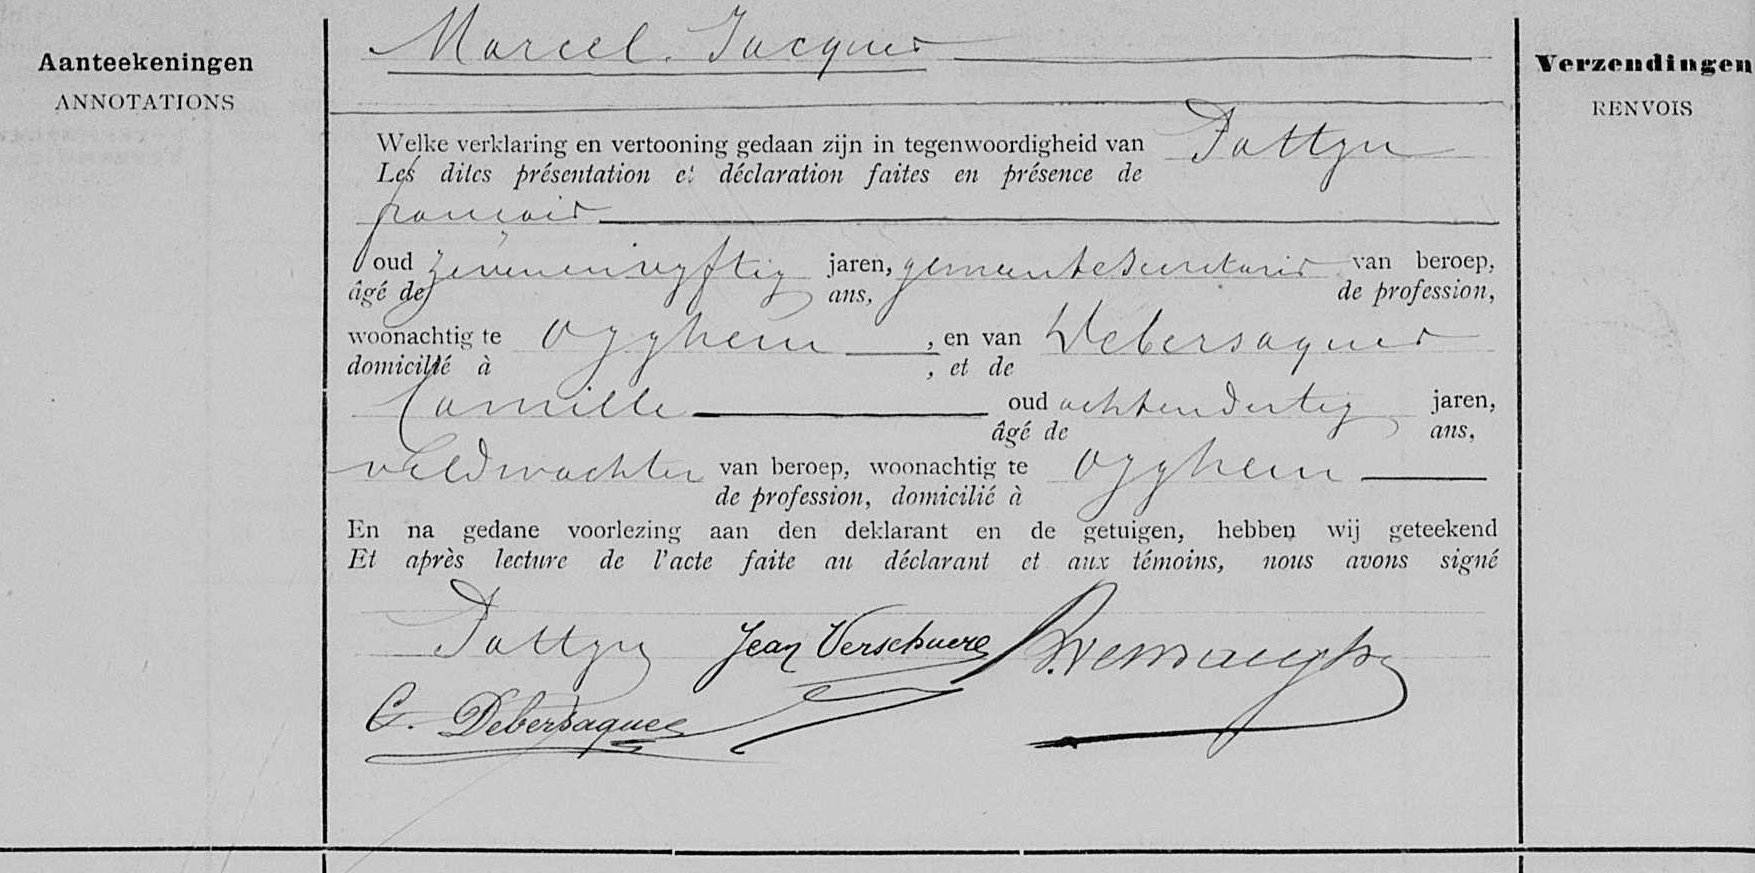 Aanteekeningen
ANNOTATIONS
Marcel Jacques
Verzendingen
RENVOIS
Welke verklaring en vertooning gedaan zijn in tegenwoordigheid van Pattyn
Les dites présentation et déclaration faites en présence de
françois
oud zevenenvyftig jaren, gemeentesecretaris van beroep,
âgé de ans, de profession,
woonachtig te Oyghem , en van Debersaques
domicilié à , et de
Camille oud achtendertig jaren,
âgé de ans,
veldwachter van beroep, woonachtig te Oyghem
de profession, domicilié à
En na gedane voorlezing aan den deklarant en de getuigen, hebben wij geteekend
Et après lecture de l'acte faite au déclarant et aux témoins, nous avons signé
Pattyn Jean Verschuere
C. Debersaques